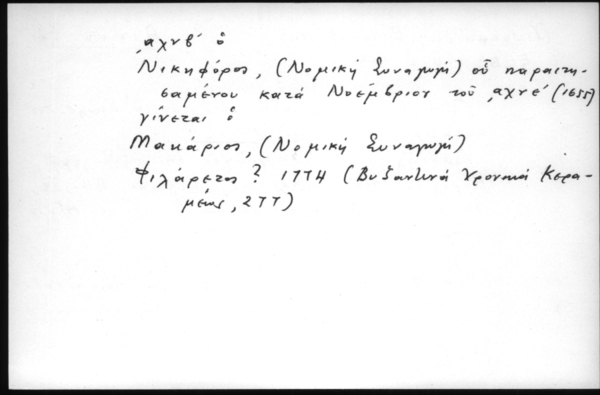 ͵αχνβ´ ὁ
Νικηφόρος, (Νομική Συναγωγή) οὗ παραιτη-
σαμένου κατά Νοέμβριον τοῦ ͵αχνε´ (1655)
γίνεται ὁ
Μακάριος, (Νομική Συναγωγή)
Φιλάρετος? 1774 (Βυζαντινά Χρονικά Κερα-
μέως, 277)